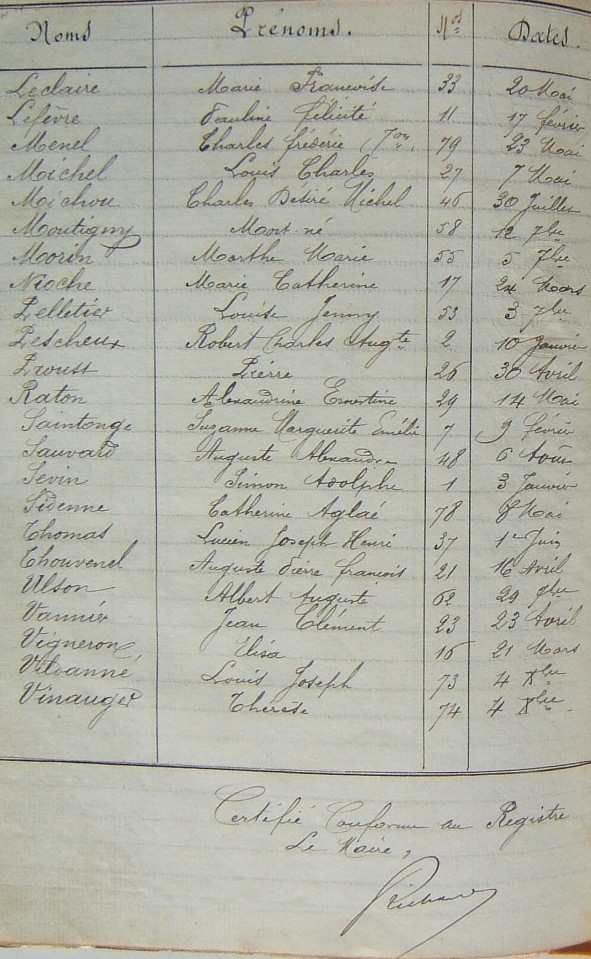 Noms Prénoms. Nos Dates.
Leclaire Marie Francoise 33 20 Mai
Lefèvre Pauline félicité 11 17 février
Menel Charles frédéric 79 23 Mai
Michel Louis Charles 27 7 Mai
Michou Charles Désiré Michel 46 30 Juillet
Montigny Mort-né 58 12 7bre
Morin Marthe Marie 55 5 7bre
Nioche Marie Catherine 17 24 Mars
Pelletier Louise Jenny 53 3 7bre
Pescheux Robert Charles Augte 2 10 Janvier
Proust Pierre 26 30 Avril
Raton Alexandrine Ernestine 29 14 Mai
Saintonge Suzanne Marguerite Emélie 7 9 février
Sauvard Auguste Alexandre 48 6 Août
Sevin Simon Adolphe 1 3 Janvier
Sidenne Catherine Aglaé 78 8 Mai
Thomas Lucien Joseph Henri 37 1er Juin
Thouvenel Auguste Pierre françois 21 16 Avril
Ulson Albert Auguste 62 29 9bre
Vannier Jean Clément 23 23 Avril
Vigneron Elisa 16 21 Mars
Louis Joseph 73 4 Xbre
Vinauger Thérèse 74 4 Xbre
Certifié Conforme au Registre
Le Maire,